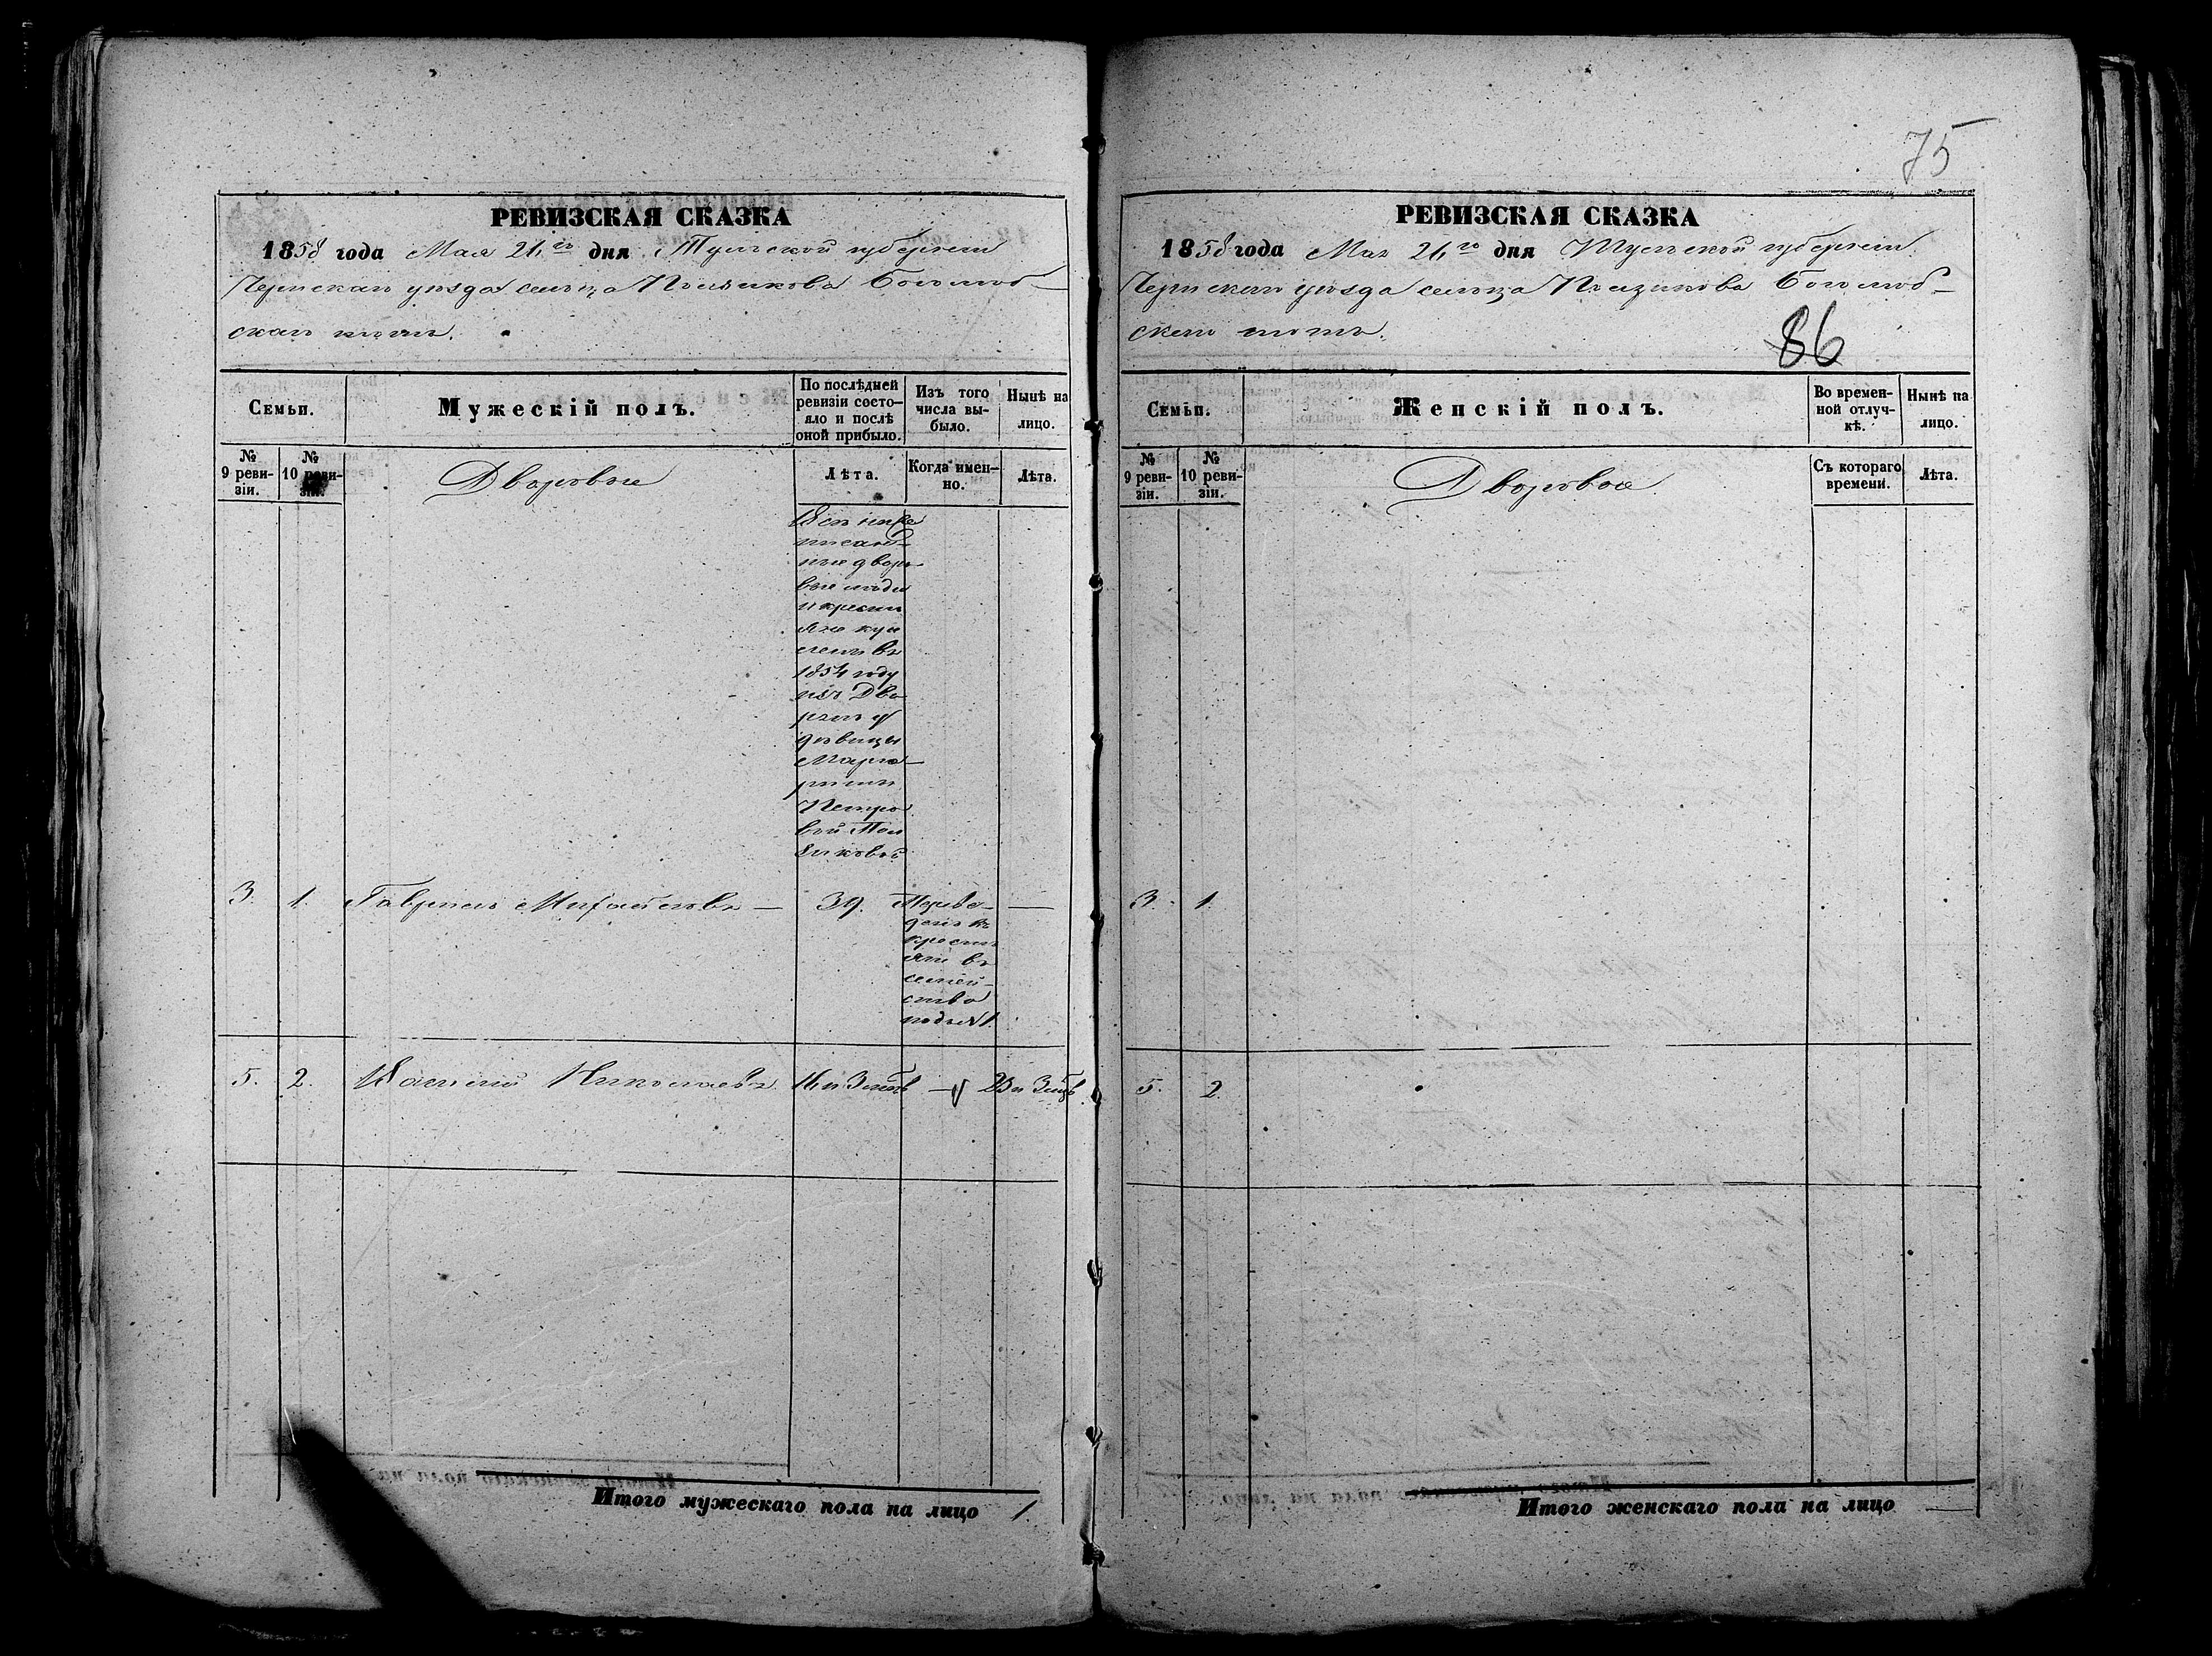 75
РЕВИЗСКАЯ СКАЗКА
1858 года Мая 21го дня Тульской губернии
Чернскаго уѣзда сельца
скаго тожъ.
Семьи.
Мужескій полъ.
По послѣдней ревизіи состо-
яло и послѣ
оной прибыло.
Изъ того
числа вы-
было.
Нынѣ на
лицо.
№
9 реви-
зіи.
№
10 реви-
зіи.
Дворовые
Лѣта.
Когда имен-
но.
Лѣта.
Всѣ ниже
писан-
ные дворо-
вые люди
и кресть
яне куп
лены въ
1854 году
изъ Дво
рянъ у
дѣвицы
Марга-
риты
Петро
вой
3. 1. Гаврила Михайловъ — 39. Переве-
денъ въ
кресть
яне въ
семей-
ство
подъ № 1. —
5. 2. Василий Николаевъ 16 и 3 мѣс — 23 и 3 мѣс
Итого мужескаго пола на лицо 1.
РЕВИЗСКАЯ СКАЗКА
1858 года Мая 21го дня Тульской губернии
Чернскаго уѣзда сельца
скаго тожъ.
86
Семьи.
Женскій полъ.
Во времен-
ной отлуч-
кѣ.
Нынѣ на
лицо.
№
9 реви-
зіи.
№
10 реви-
зіи.
Дворовые
Съ котораго
времени.
Лѣта.
3. 1.
5. 2.
Итого женскаго пола на лицо —